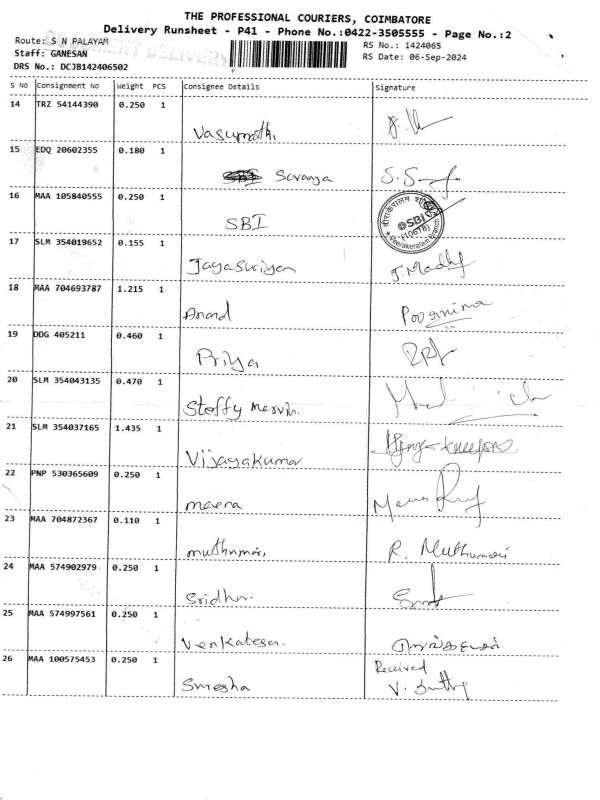 THE PROFESSIONAL COURIERS, COIMBATORE
Delivery Runsheet - P41 - Phone No.:0422-3505555 - Page No.:2
Route: S N PALAYAM
RS No.: 1424065
Staff: GANESAN
RS Date: 06-Sep-2024
DRS No.: DCJB142406502
S No Consignment No Weight PCS Consignee Details Signature
14 TRZ 54144390 0.250 1
Vasumathi
15 EDQ 20602355 0.180 1
SBI Saranya
16 MAA 105840555 0.250 1
SBI
SBI
(10618)
Veerakeralam Branch
17 SLM 354019652 0.155 1
Jayasuriyan J Madhy
18 MAA 704693787 1.215 1
Anand Poornima
19 DDG 405211 0.460 1
Priya
20 SLM 354043135 0.470 1
Steffy Mervin.
21 SLM 354037165 1.435 1
Vijayakumar
22 PNP 530365609 0.250 1
meena
23 MAA 704872367 0.110 1
muthumari, R. Muthumari
24 MAA 574902979 0.250 1
Sridhar.
25 MAA 574997561 0.250 1
Venkatesan.
26 MAA 100575453 0.250 1 Received
Smesha